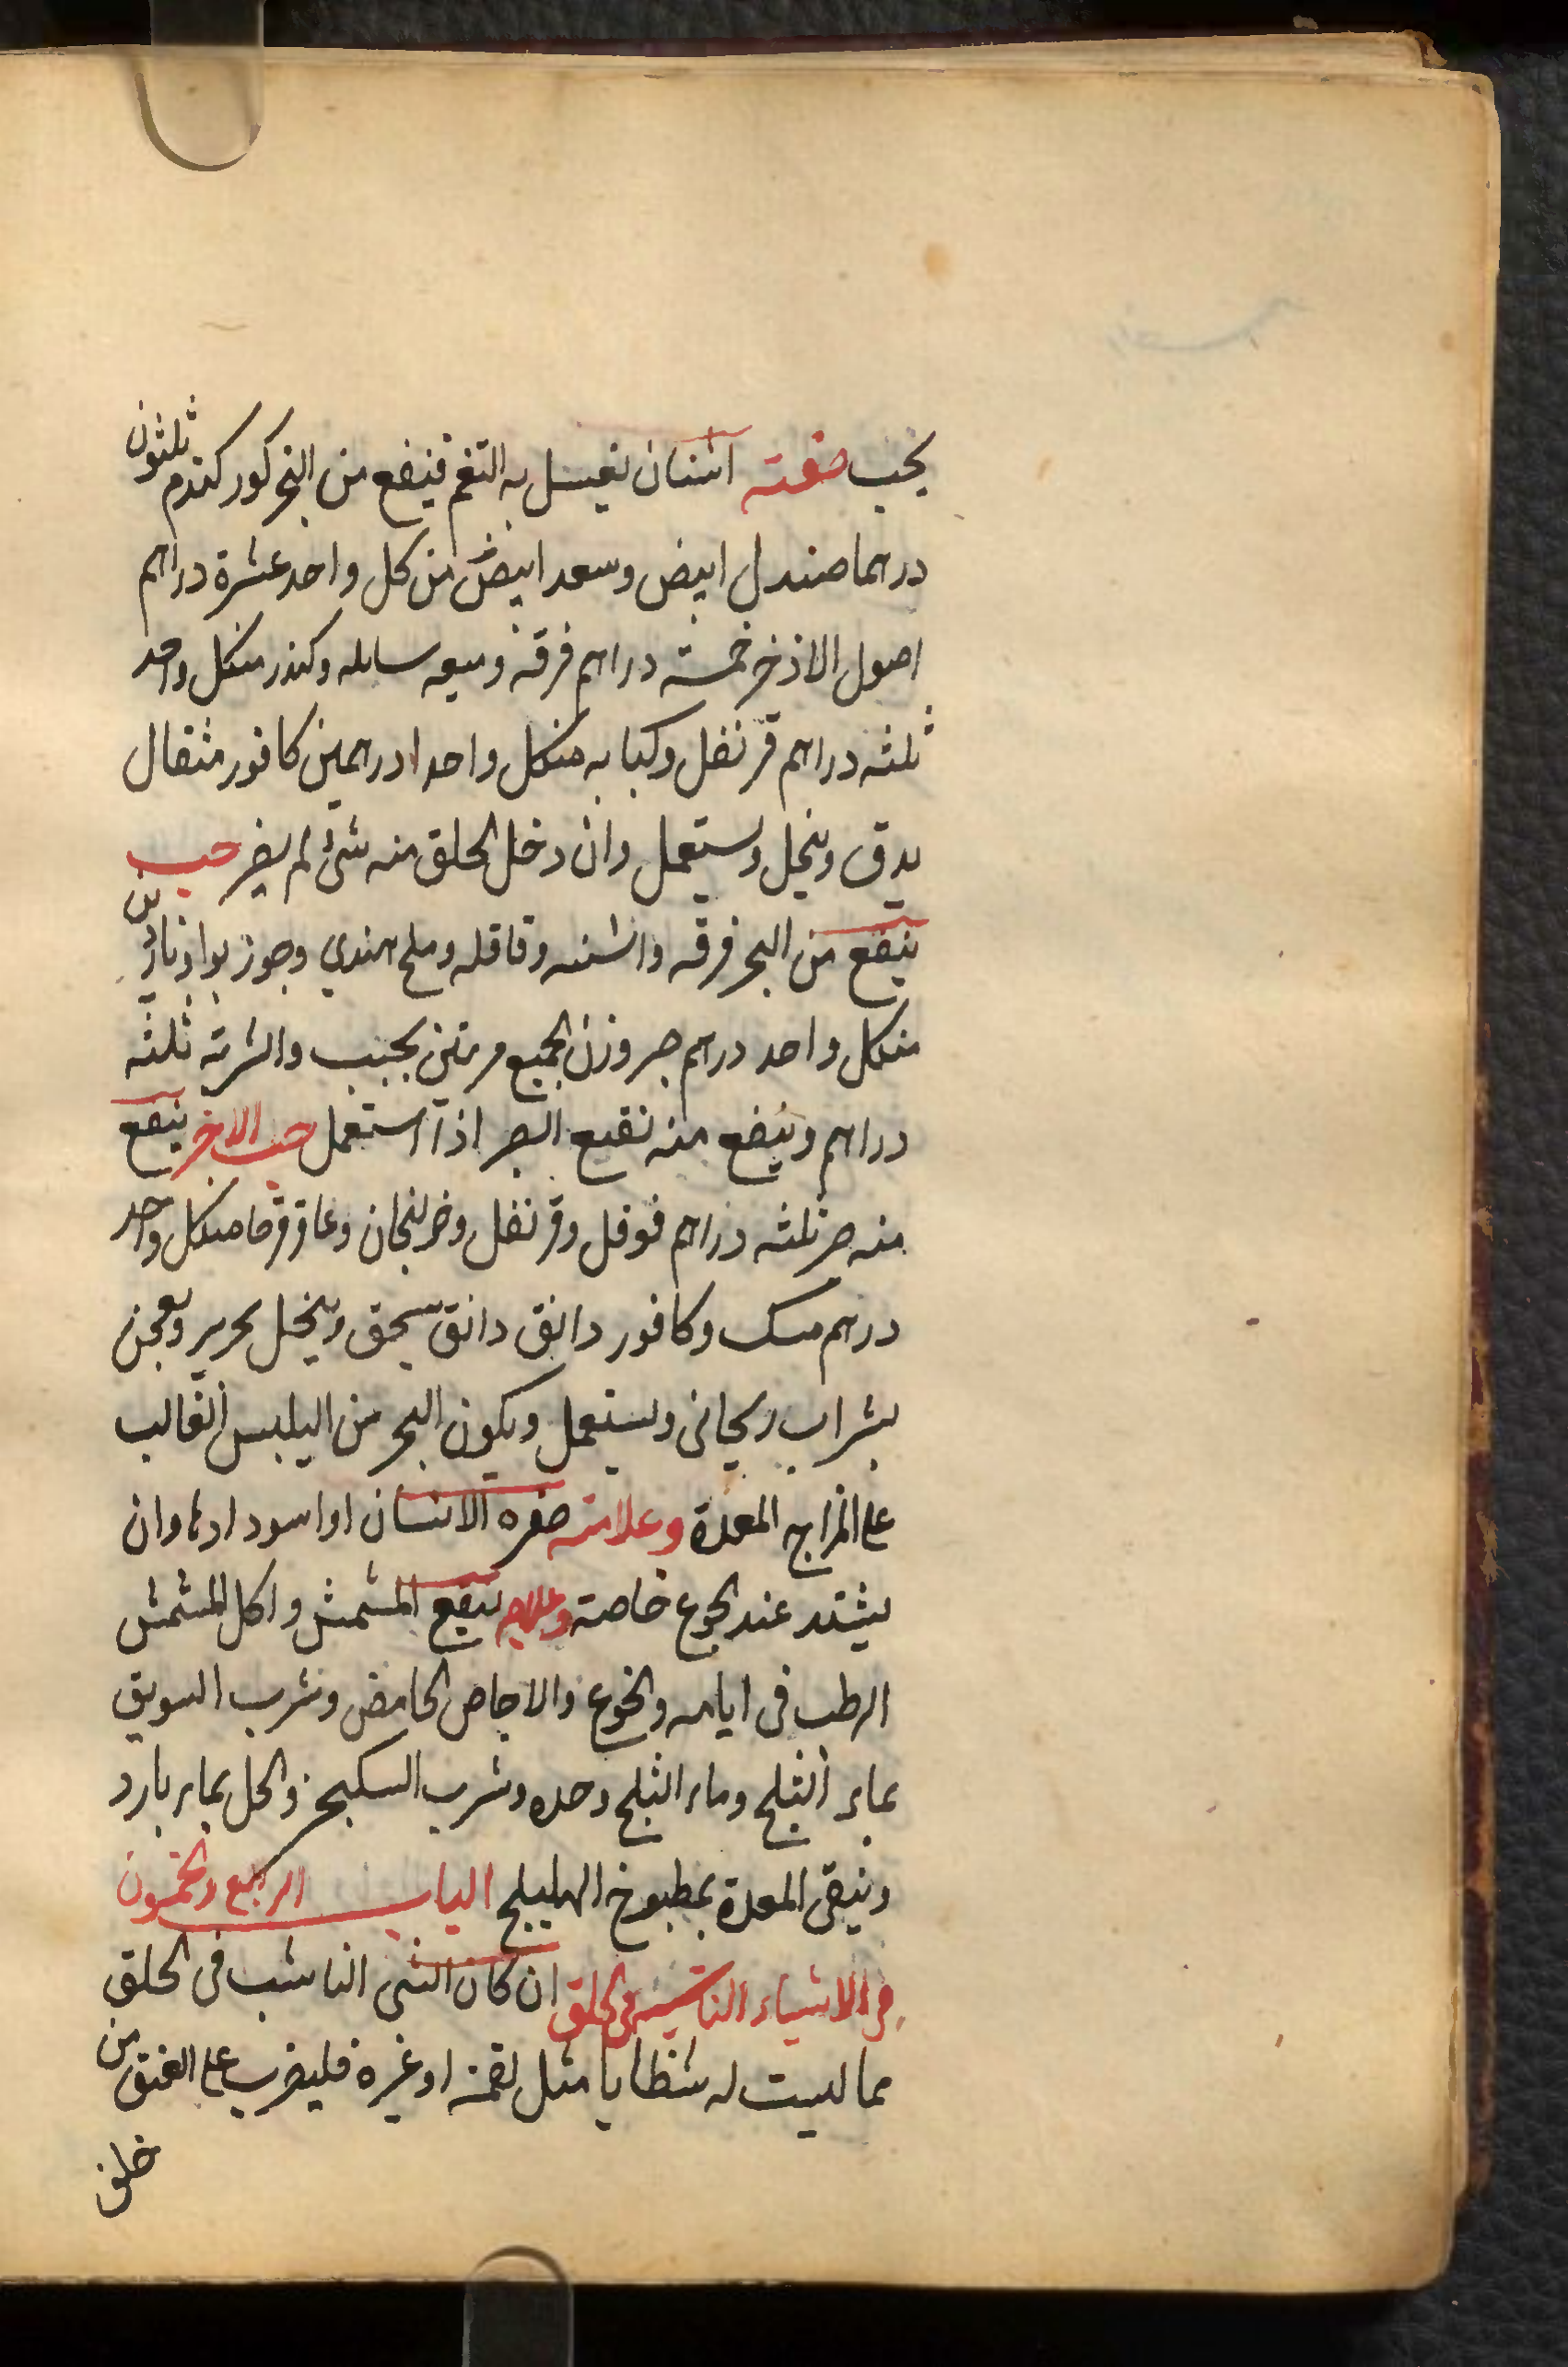 يجب صفته اشنان يغسل به الفم فينفع من البخر كور كندم ثلثون
درهما صندل ابيض وسعد ابيض من كل واحد عشرة دراهم
اصول الاذخر خمسة دراهم قرفه وميعه سايله وكندر منكل واحد
ثلثه دراهم قرنفل وكبابه منكل واحد درهمين كافور مثقال
يدق وينخل ويستعمل وان دخل الحلق منه شئ لم يضر حب
ينفع من البخر قرفه واشنه وقاقله وملح هندي وجوز بوا
منكل واحد درهم صبر وزن الجميع مرتين يحبب والشربة ثلثه
دراهم وينفع منه نقيع الصبر اذا استعمل حب الاخر ينفع
منه صبر ثلثه دراهم فوفل وقرنفل وخولنجان وعاقرقرحا منكل واحد
درهم مسك وكافور دانق دانق يسحق وينخل بحرير ويعجن
بشراب ريحانى ويستعمل ويكون البخر من اليبس الغالب
على المزاج المعدة وعلامته صفره الاسنان او اسودادها وان
يشتد عند الجوع خاصة وعلاجه نقيع المشمش واكل المشمش
الرطب فى ايامه والخوخ والاجاص الحامض وشرب السويق
بماء الثلج وماء الثلج وحده وشرب السكنجبين والخل بماء بارد
وينقى المعدة بمطبوخ الهليلج الباب الرابع والخمسون
فى الاشياء الناشبة فى الحلق ان كان الشى الناشب فى الحلق
مما ليست له شظايا مثل لقمة او غيره فليضرب على العنق من
خلف